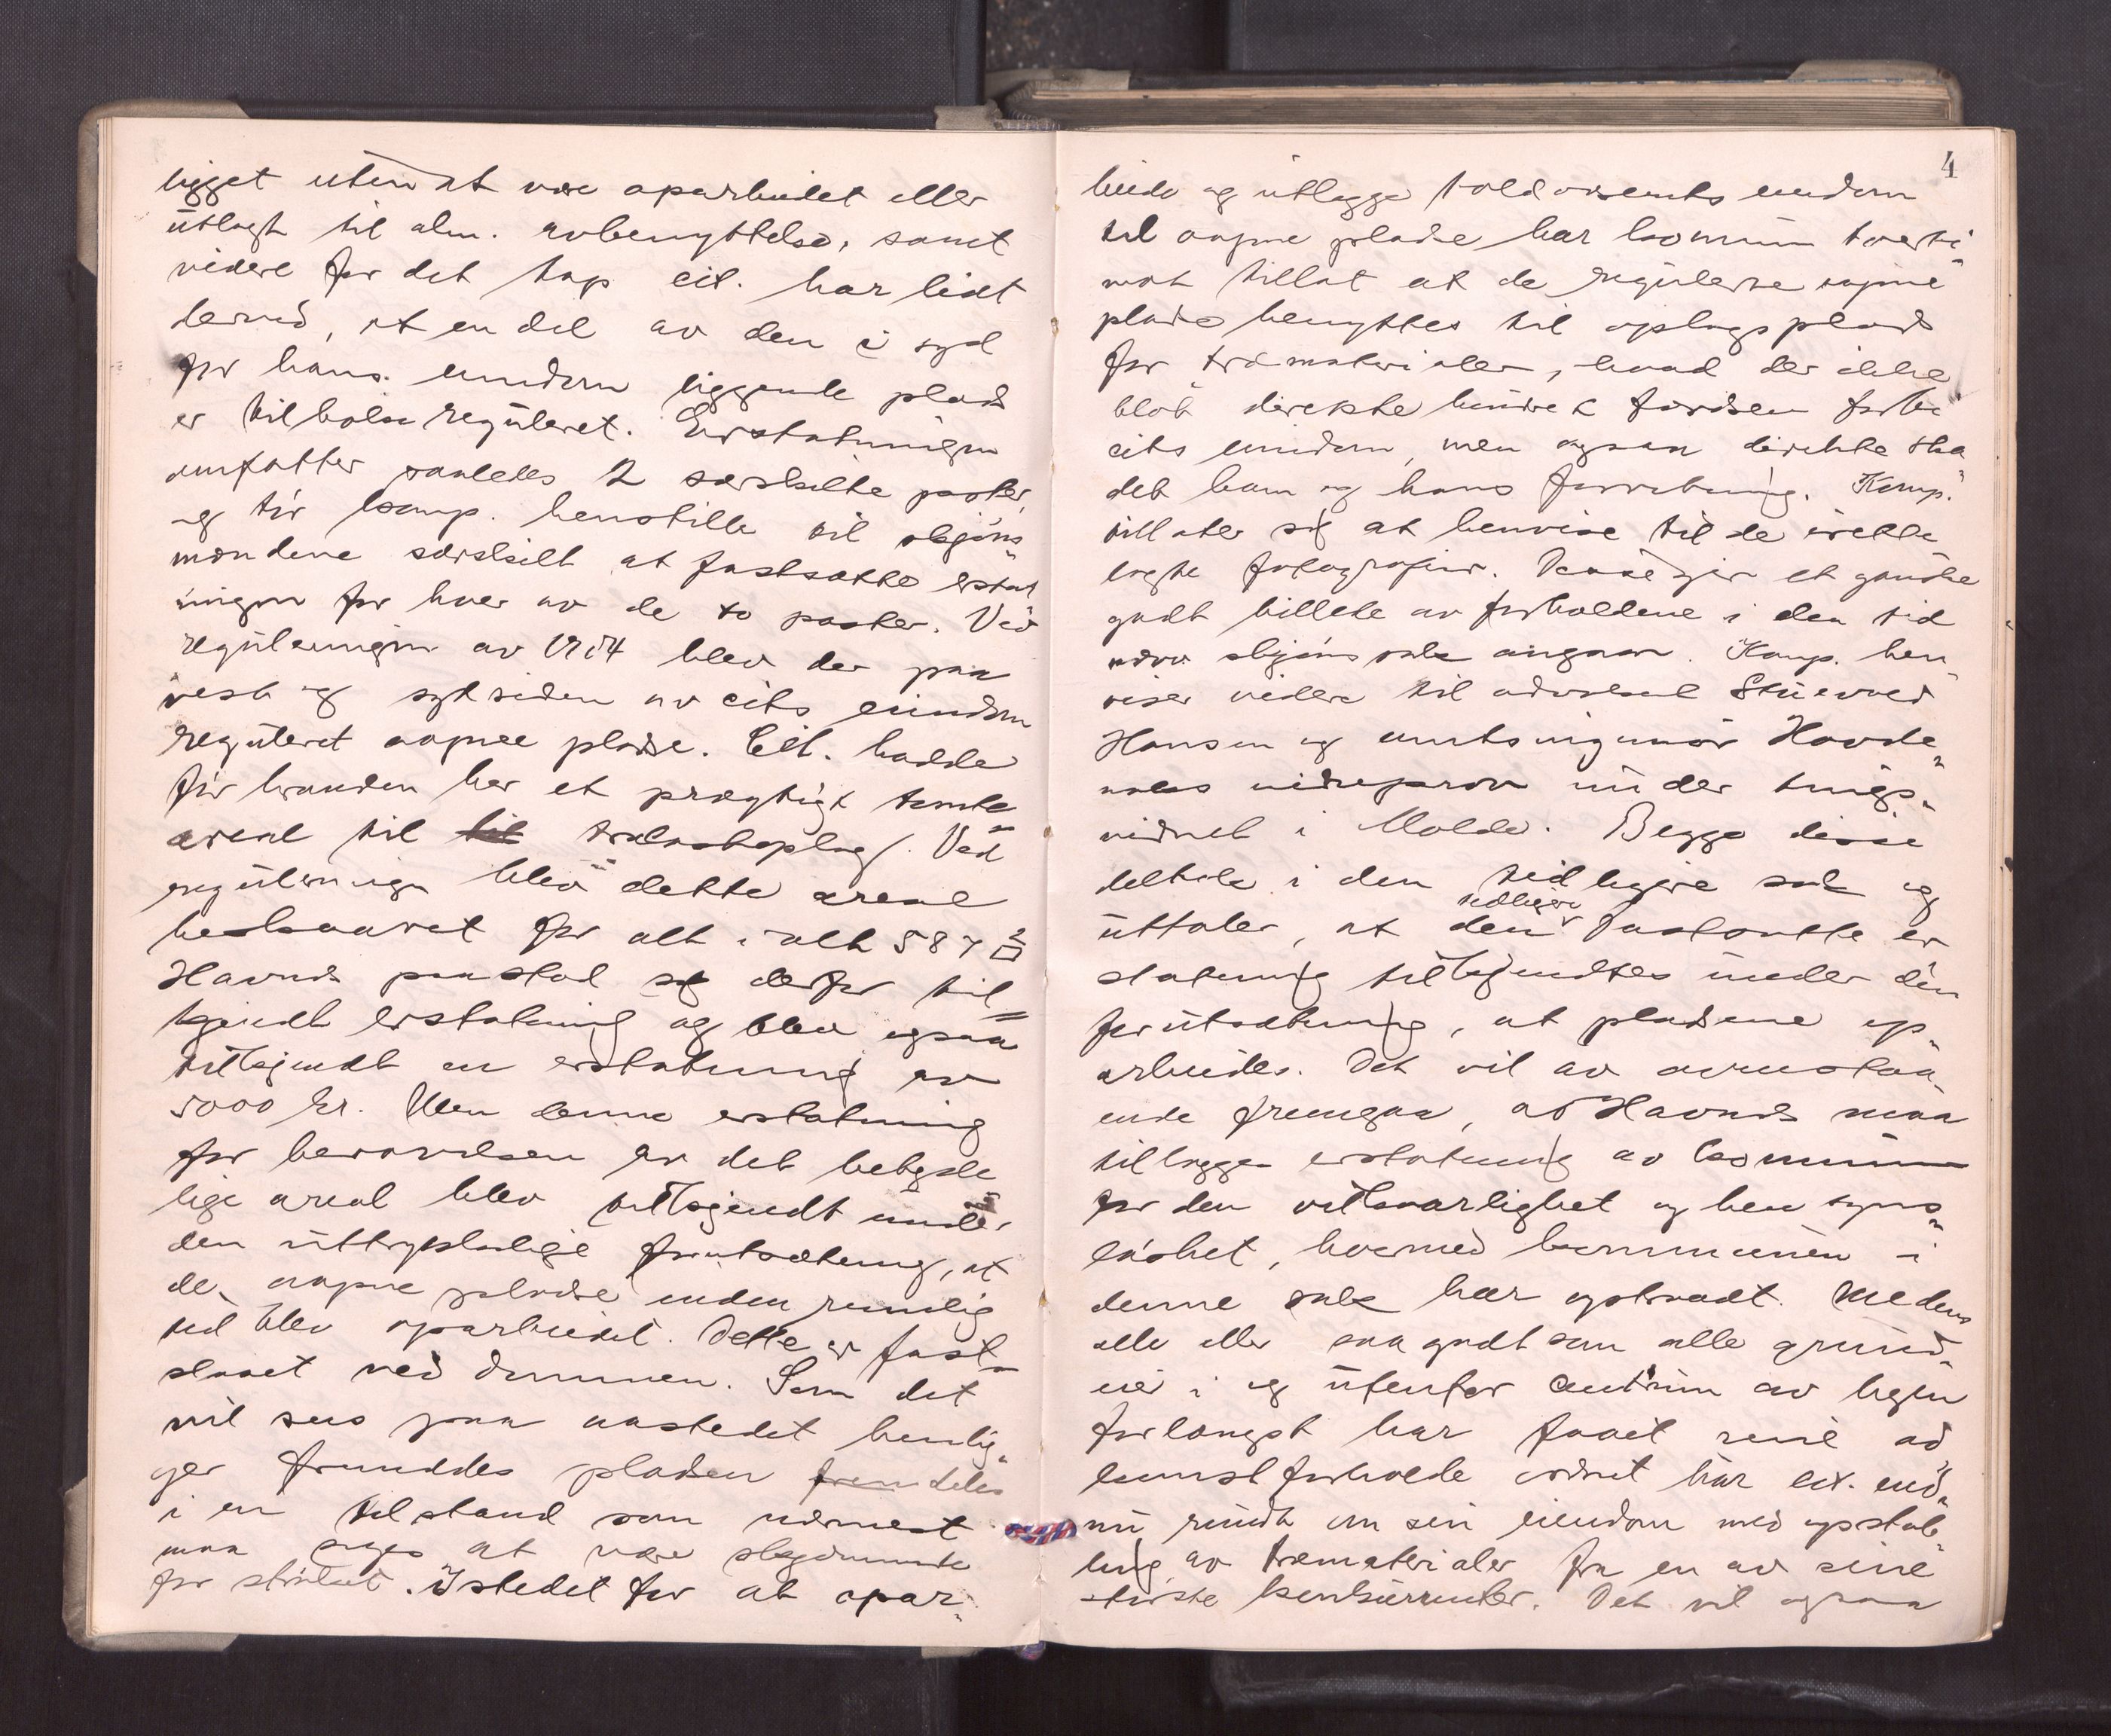 ligget uten at være oparbeidet eller
utlagt til alm. avbenyttelse, samt
videre for det tap cit. har lidt
derved, at en del av den i syd
for hans eiendom liggende plads
er tilbake reguleret. Erstatningen
omfatter saaledes 2 særskilte poster,
og tør komp. henstille til skjøns
mændene særskilt at fastsætte erstat
ningen for hver av de to poster. Ved
reguleringen av 1904 blev der paa
vest og sydsiden av cits eiendom
reguleret aapne pladse. Cit. hadde
før branden her et prægtigt tomte
areal til trælastoplag. Ved
reguleringen blev dette areal
beskaaret for alt i alt 587
Havnes paastod sig derfor til
kjendt erstatning og blev ogsaa
tilkjendt en erstatning av
5000 kr. Men denne erstatning
for berøvelsen av det betyde
lige areal blev tilkjendt under
den uttrykkelige forutsætning, at
de aapne pladse inden rimelig
tid blev oparbeidet. Dette er fast
slaaet ved dommen. Som det
vil sees paa aastedet henlig
ger fremdeles pladsen
i en tilstand som nærmest
maa siges at være skjæmmende
for strøket. Istedet for at opar
4
beide og utlegge eiendom
til aapne pladse har kommunen tverti
mot tillat at de regulerte aapne
pladse benyttes til oplagsplads
for træmaterialer, hvad der ikke
blot direkte hindret færdsen forbi
cits eiendom, men ogsaa direkte ska
det ham og hans forretning. Komp.
tillater sig at henvise til de irette
lagte fotografier. Disse gir et ganske
godt billede av forholdene i den tid
nærv. skjønssak angaar. Komp. hen
viser videre til advokat
Hansen og amtsingeniør Hovde
naks vidneprov under tings
vidnet i Molde. Begge disse
deltok i den tidligere sak og
uttaler, at den tidligere fastsatte er
statning tilkjendtes under den
forutsætning, at pladsene op
arbeides. Det vil av ovenstaa
ende fremgaa, at Havnes maa
tillegges erstatning av kommunen
for den vilkaarlighet og hensyns
løshet, hvormed kommunen i
denne sak har optraadt. Medens
alle eller saa godt som alle grund
eier i og utenfor centrum av byen
forlængst har faaet sine ad
komstforholde ordnet har cit. end
nu rundt om sin eiendom med opstab
ling av træmaterialer fra en av sine
største konkurrenter. Det vil ogsaa